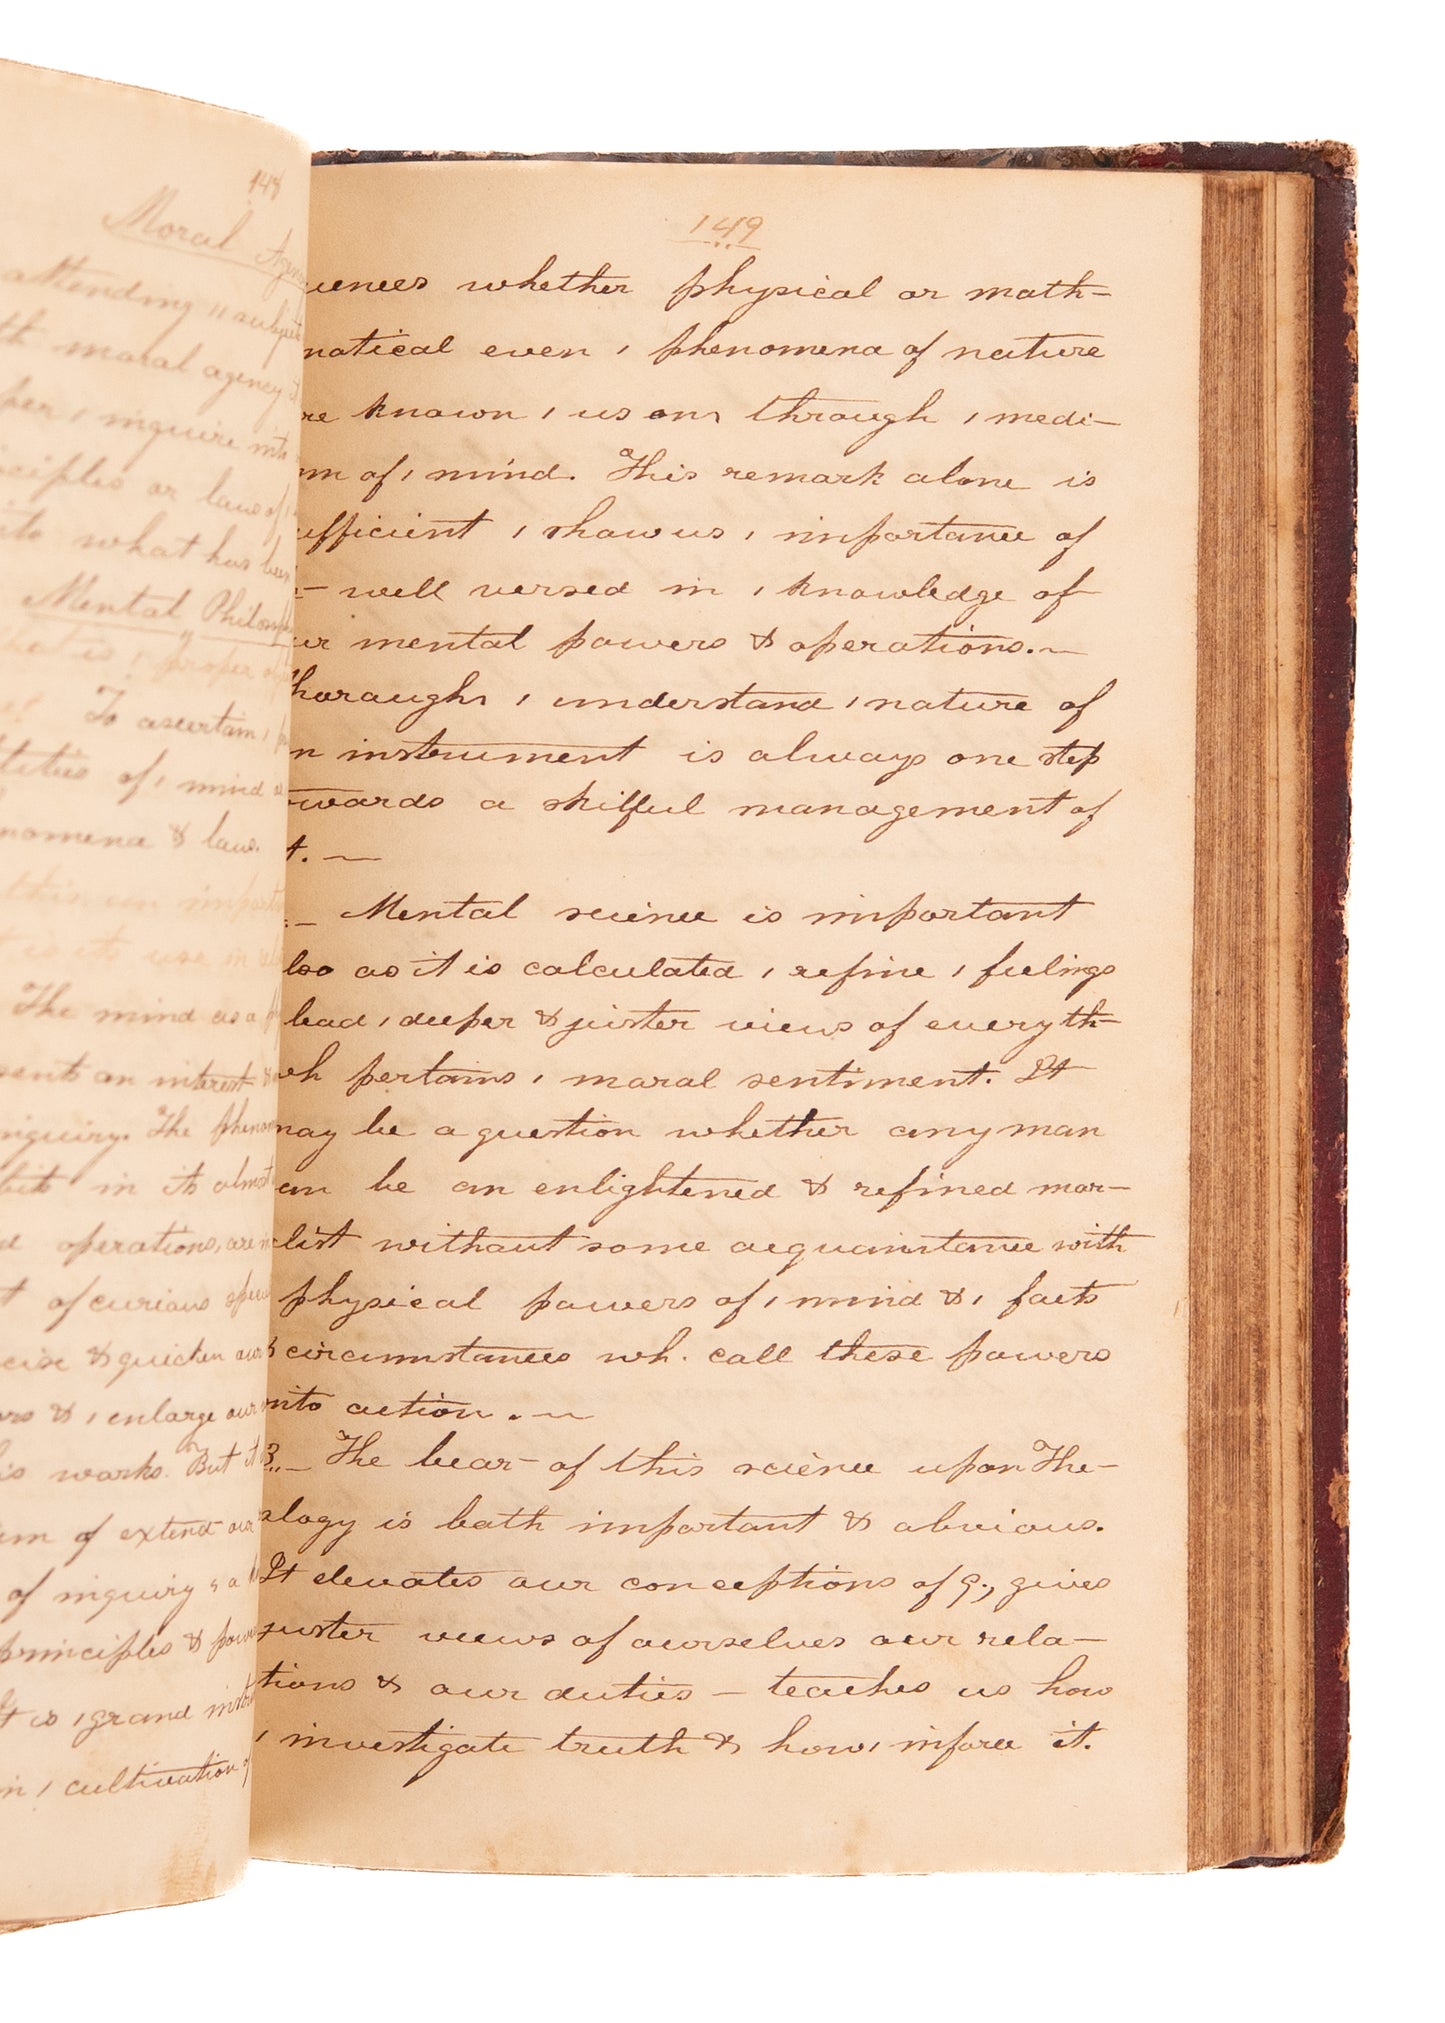 148
Moral Agen
attending ,, subject
th moral agency
per , inquire into
ciples or laws of ,
to what has been
Mental Philos
, proper
To ascertain ,
of , mind
nomena & laws.
import
its use in
The mind as a
sents an interest
inquiry. The phenom
bits in its almost
operations, are
of curious
cise & quicken our
& , enlarge our
is works. But it
um of extend our
of inquiry
principles & pow
It is , grand
in , cultivation of
149
uences whether physical or math-
matical even , phenomena of nature
re known , us only through , medi-
um of , mind. This remark alone is
ufficient , show us , importance of
- well versed in , knowledge of
ur mental powers & operations.
horoughly , understand , nature of
n instrument is always one step
owards a skilful management of
t.
Mental science is important
lso as it is calculated , refine , feelings
lead , deeper & juster views of everyth-
wh pertains , moral sentiment. It
may be a question whether any man
can be an enlightened & refined mor-
alist without some acquaintance with
physical powers of , mind & , facts
& circumstances wh. call these powers
into action.
3. The bear- of this science upon The-
ology is both important & obvious.
It elevates our conceptions of G., gives
juster views of ourselves our rela-
tions & our duties - teaches us how
, investigate truth & how , inforce it.